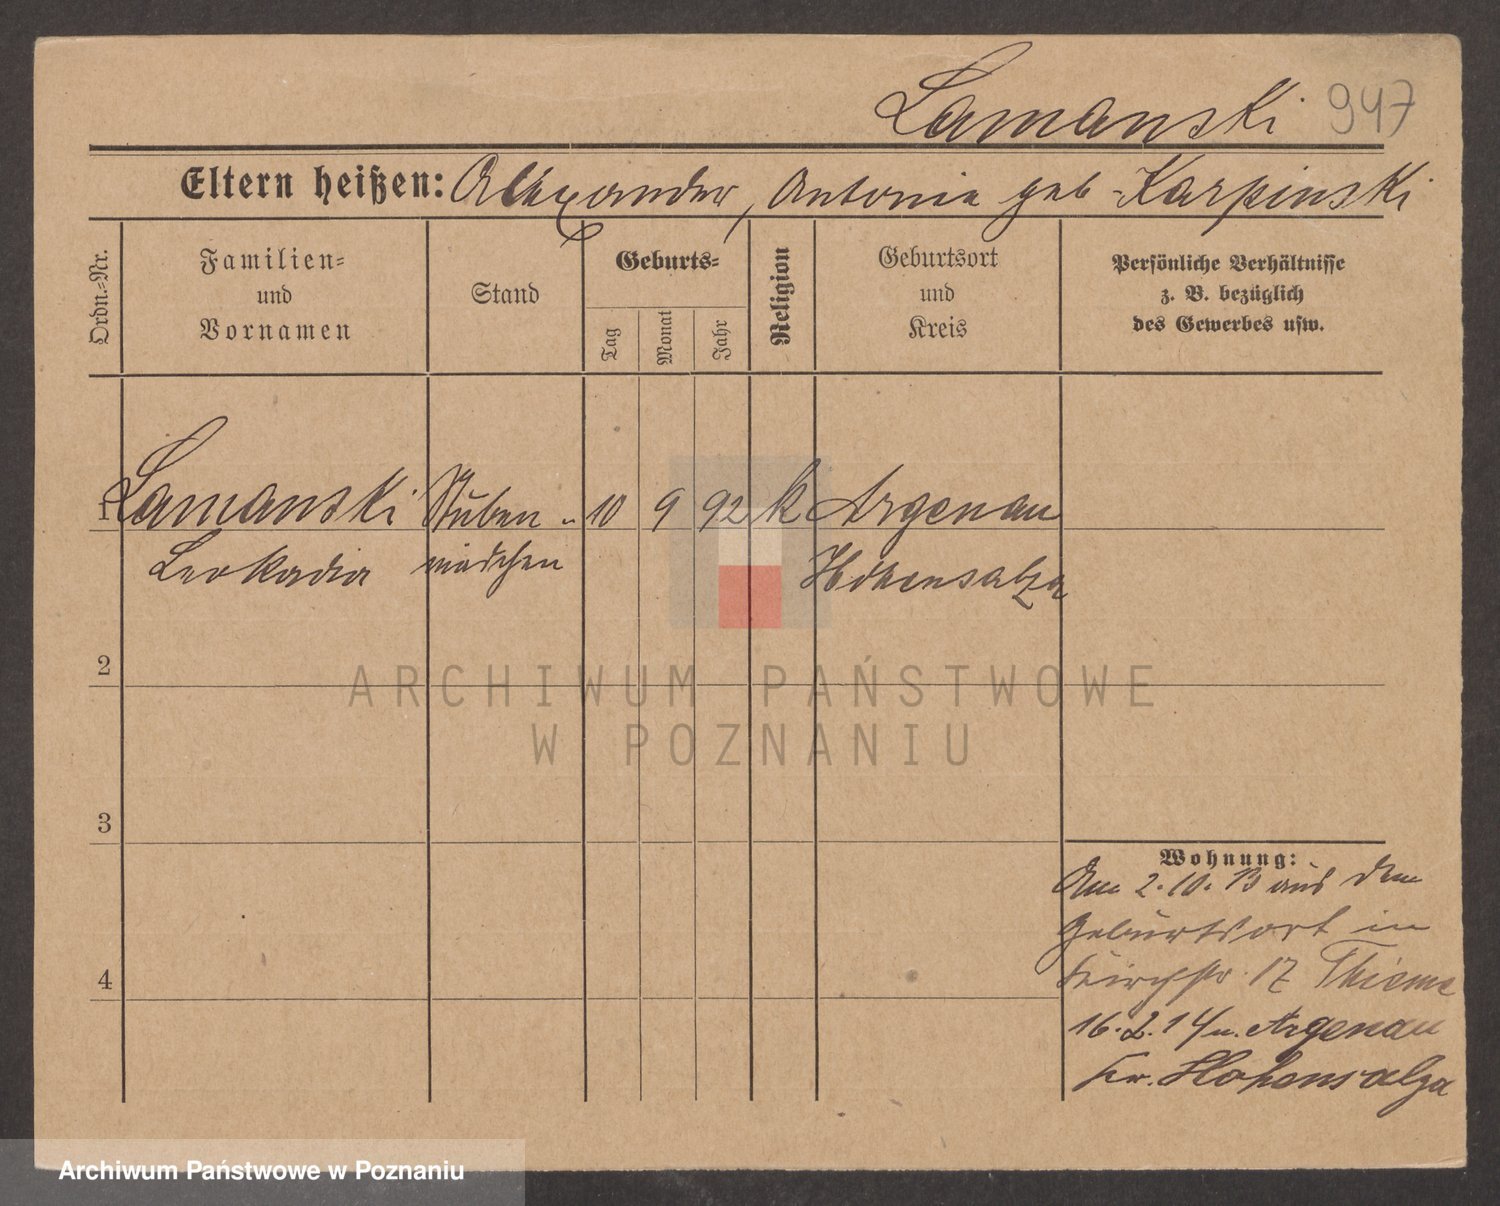 Lamanski 947
Eltern heißen: Alexander, Antonie geb. Karpinski
Ordn.-Nr.
Familien-
und
Vornamen
Stand
Geburts-
Tag
Monat
Jahr
Religion
Geburtsort
und
Kreis
Persönliche Verhältnisse
z. B. bezüglich
des Gewerbes usw.
1 Lamanski Stuben- 10 9 92 k Argenau
Leokadia mädchen Hohensalza
2
ARCHIWUM PAŃSTWOWE
W POZNANIU
3
Wohnung:
Am 2.10.13 aus dem
Geburtsort in
Kirchstr. 17 Thieme
16.2.14 n. Argenau
Kr. Hohensalza
4
Archiwum Państwowe w Poznaniu